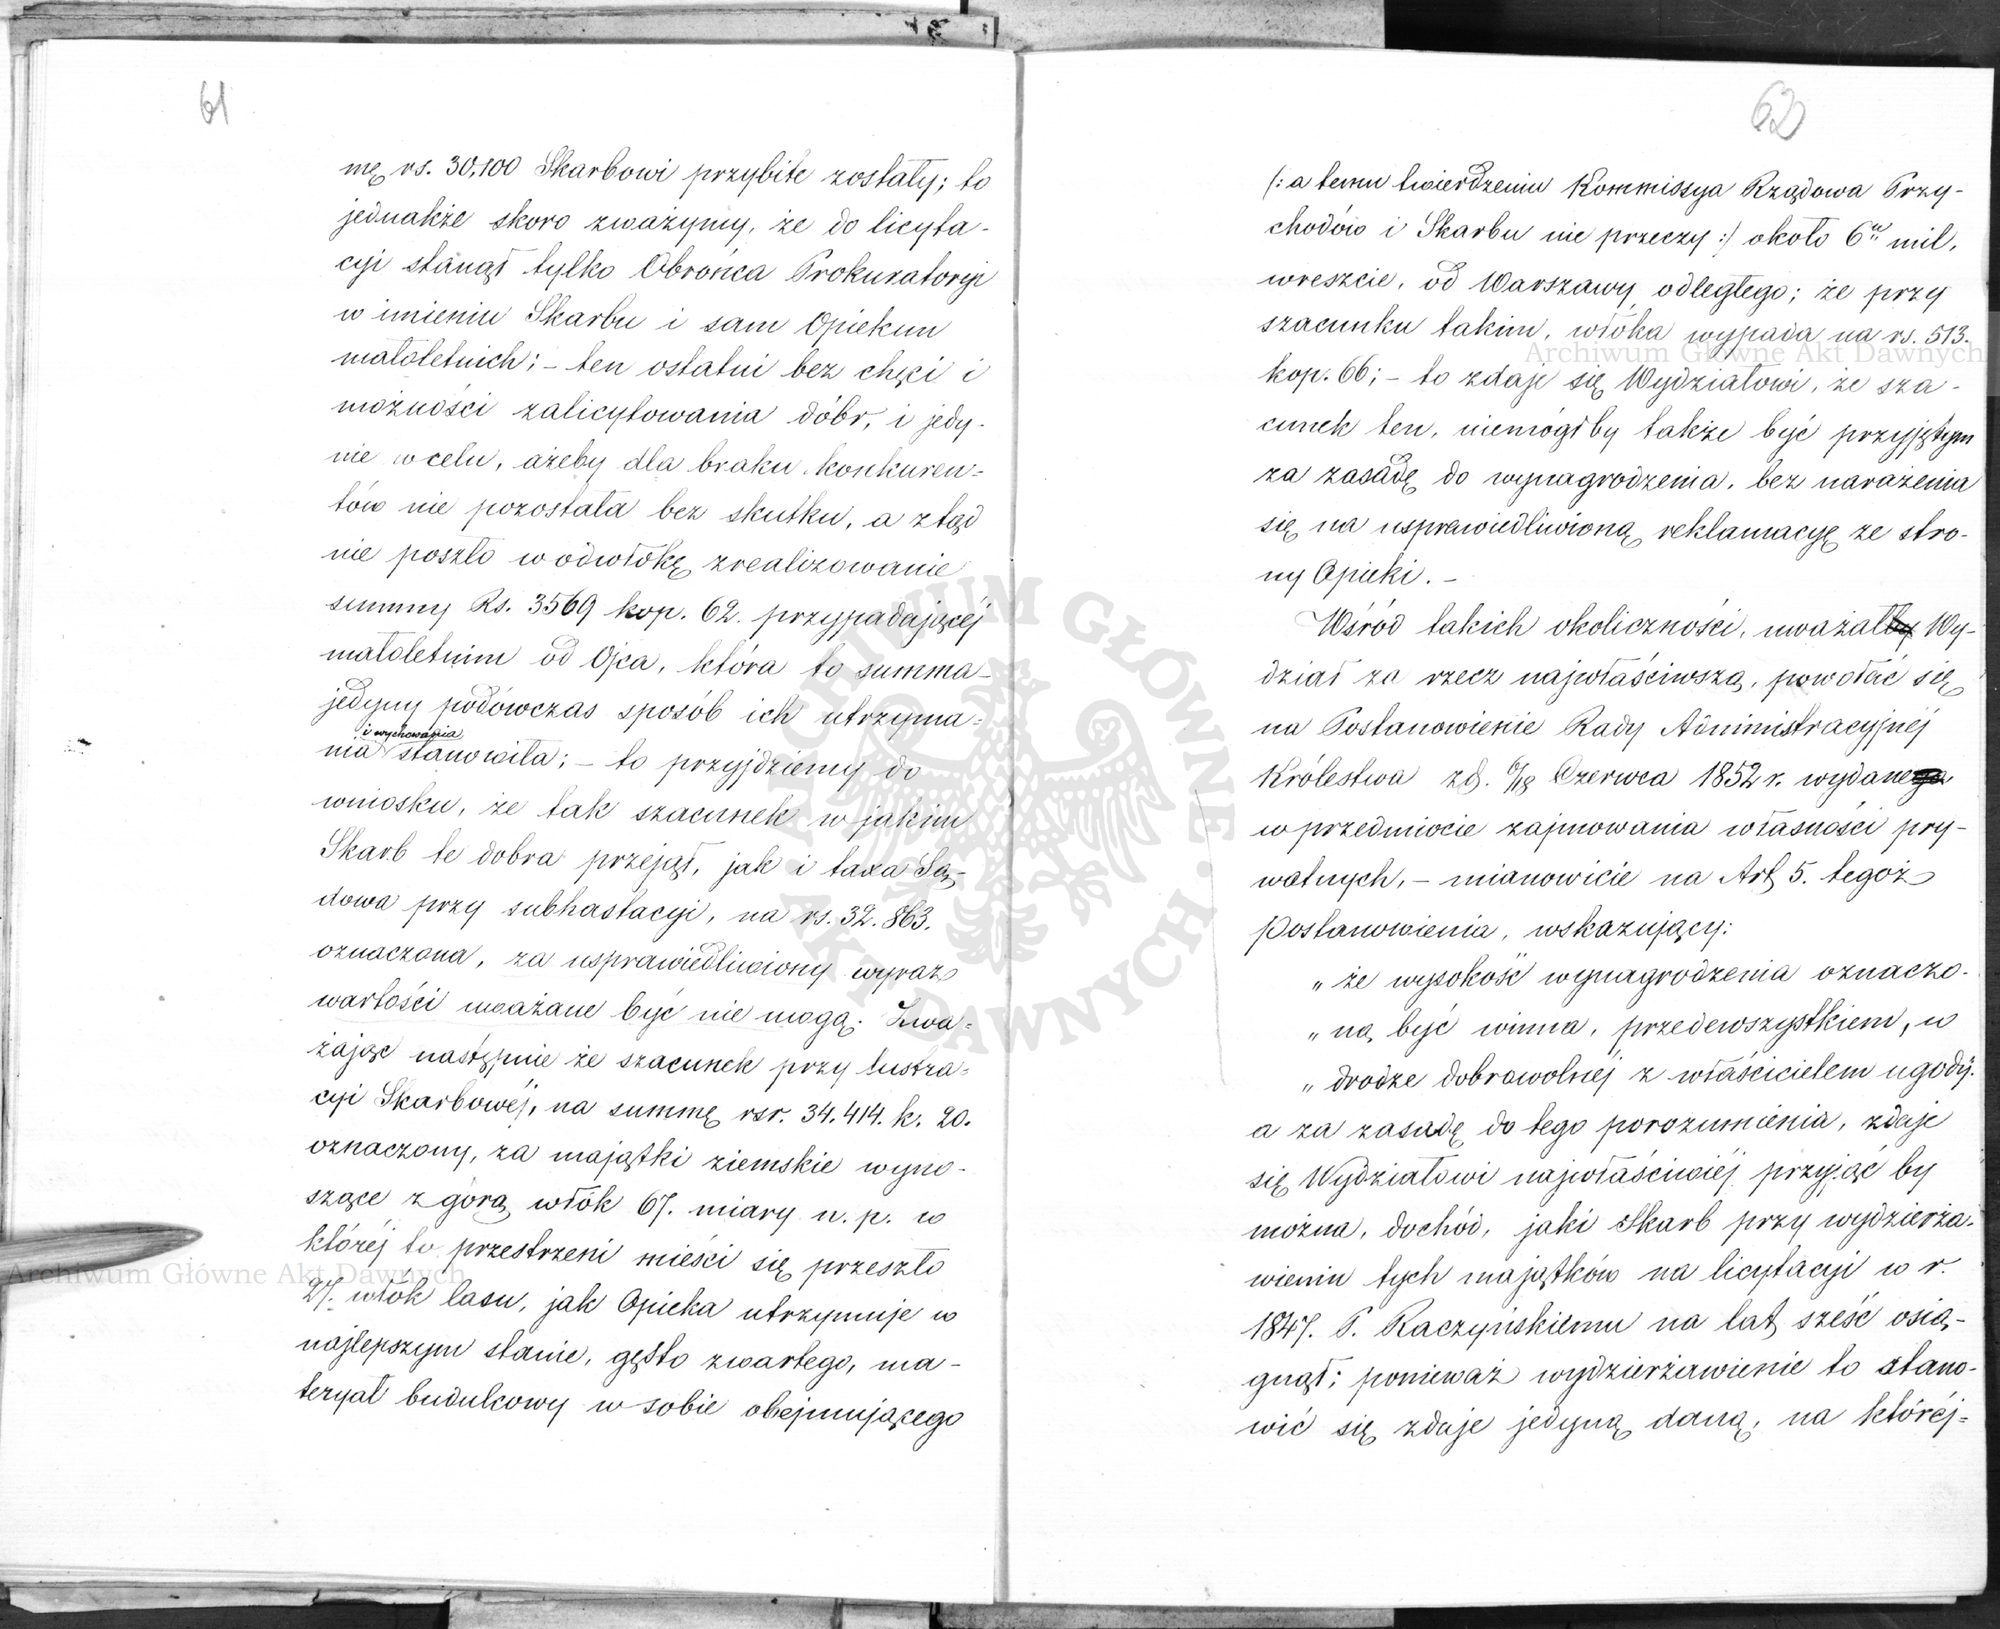 61
mę rs. 30,100 Skarbowi przybite zostały; to
jednakże skoro zważymy, że do licyta-
cyi stanął tylko Obrońca Prokuratoryi
w imieniu Skarbu i sam Opiekun
małoletnich; – ten ostatni bez chęci i
możności zalicytowania dóbr, i jedy-
nie w celu, ażeby dla braku konkuren-
tów nie pozostała bez skutku, a ztąd
nie poszło w odwłokę zrealizowanie
summy Rs. 3569 kop. 62. przypadającéj
małoletnim od Ojca, która to summa
jedyny podówczas sposób ich utrzyma-
i wychowania
nia stanowiła; – to przyjdziemy do
wniosku, że tak szacunek w jakim
Skarb te dobra przejął, jak i taxa Są-
dowa przy subhastacyi, na rs. 32.863.
oznaczona, za usprawiedliwiony wyraz
wartości uważane być nie mogą. Zwa-
żając następnie że szacunek przy lustra-
cyi Skarbowéj, na summę rsr. 34.414. k. 20.
oznaczony, za majątki ziemskie wyno-
szące z górą włók 67. miary n. p. w
któréj to przestrzeni mieści się przeszło
27. włók lasu, jak Opieka utrzymuje w
najlepszym stanie, gęsto zwartego, ma-
teryał budulcowy w sobie obejmującego
62
(: a temu twierdzeniu Kommissya Rządowa Przy-
chodów i Skarbu nie przeczy :) około 6 mil,
wreszcie, od Warszawy odległego; że przy
szacunku takim, włóka wypada na rs. 513.
kop. 66; – to zdaje się Wydziałowi, że sza-
cunek ten, niemógłby także być przyjętym
za zasadę do wynagrodzenia, bez narażenia
się na usprawiedliwioną reklamacyę ze stro-
ny Opieki. –
Wśród takich okoliczności, uważał Wy-
dział za rzecz najwłaściwszą, powołać się
na Postanowienie Rady Administracyjnéj
Królestwa z d. 6/18 Czerwca 1852 r. wydane
w przedmiocie zajmowania własności pry-
watnych, – mianowicie na Art 5. tegoż
postanowienia, wskazujący:
„ że wysokość wynagrodzenia oznaczo-
„ ną być winna, przedewszystkiem, w
„ drodze dobrowolnéj z właścicielem ugody.
a za zasadę do tego porozumienia, zdaje
się Wydziałowi najwłaściwiéj przyjąć by
można, dochód, jaki Skarb przy wydzierża-
wieniu tych majątków na licytacyi w r.
1847. P. Raczyńskiemu na lat sześć osią-
gnął; ponieważ wydzierżawienie to stano-
wić się zdaje jedyną daną, na któréj-
Archiwum Główne Akt Dawnych
Archiwum Główne Akt Dawnych
Archiwum Główne Akt Dawnych
ARCHIWUM GŁÓWNE AKT DAWNYCH